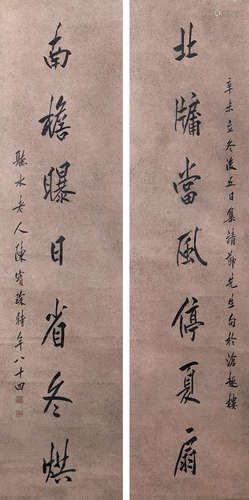 辛未立冬後五日集先生句於滄趣樓
北牖當風停夏扇
南檐曝日省冬烘
聽水老人陳寶琛時年八十四